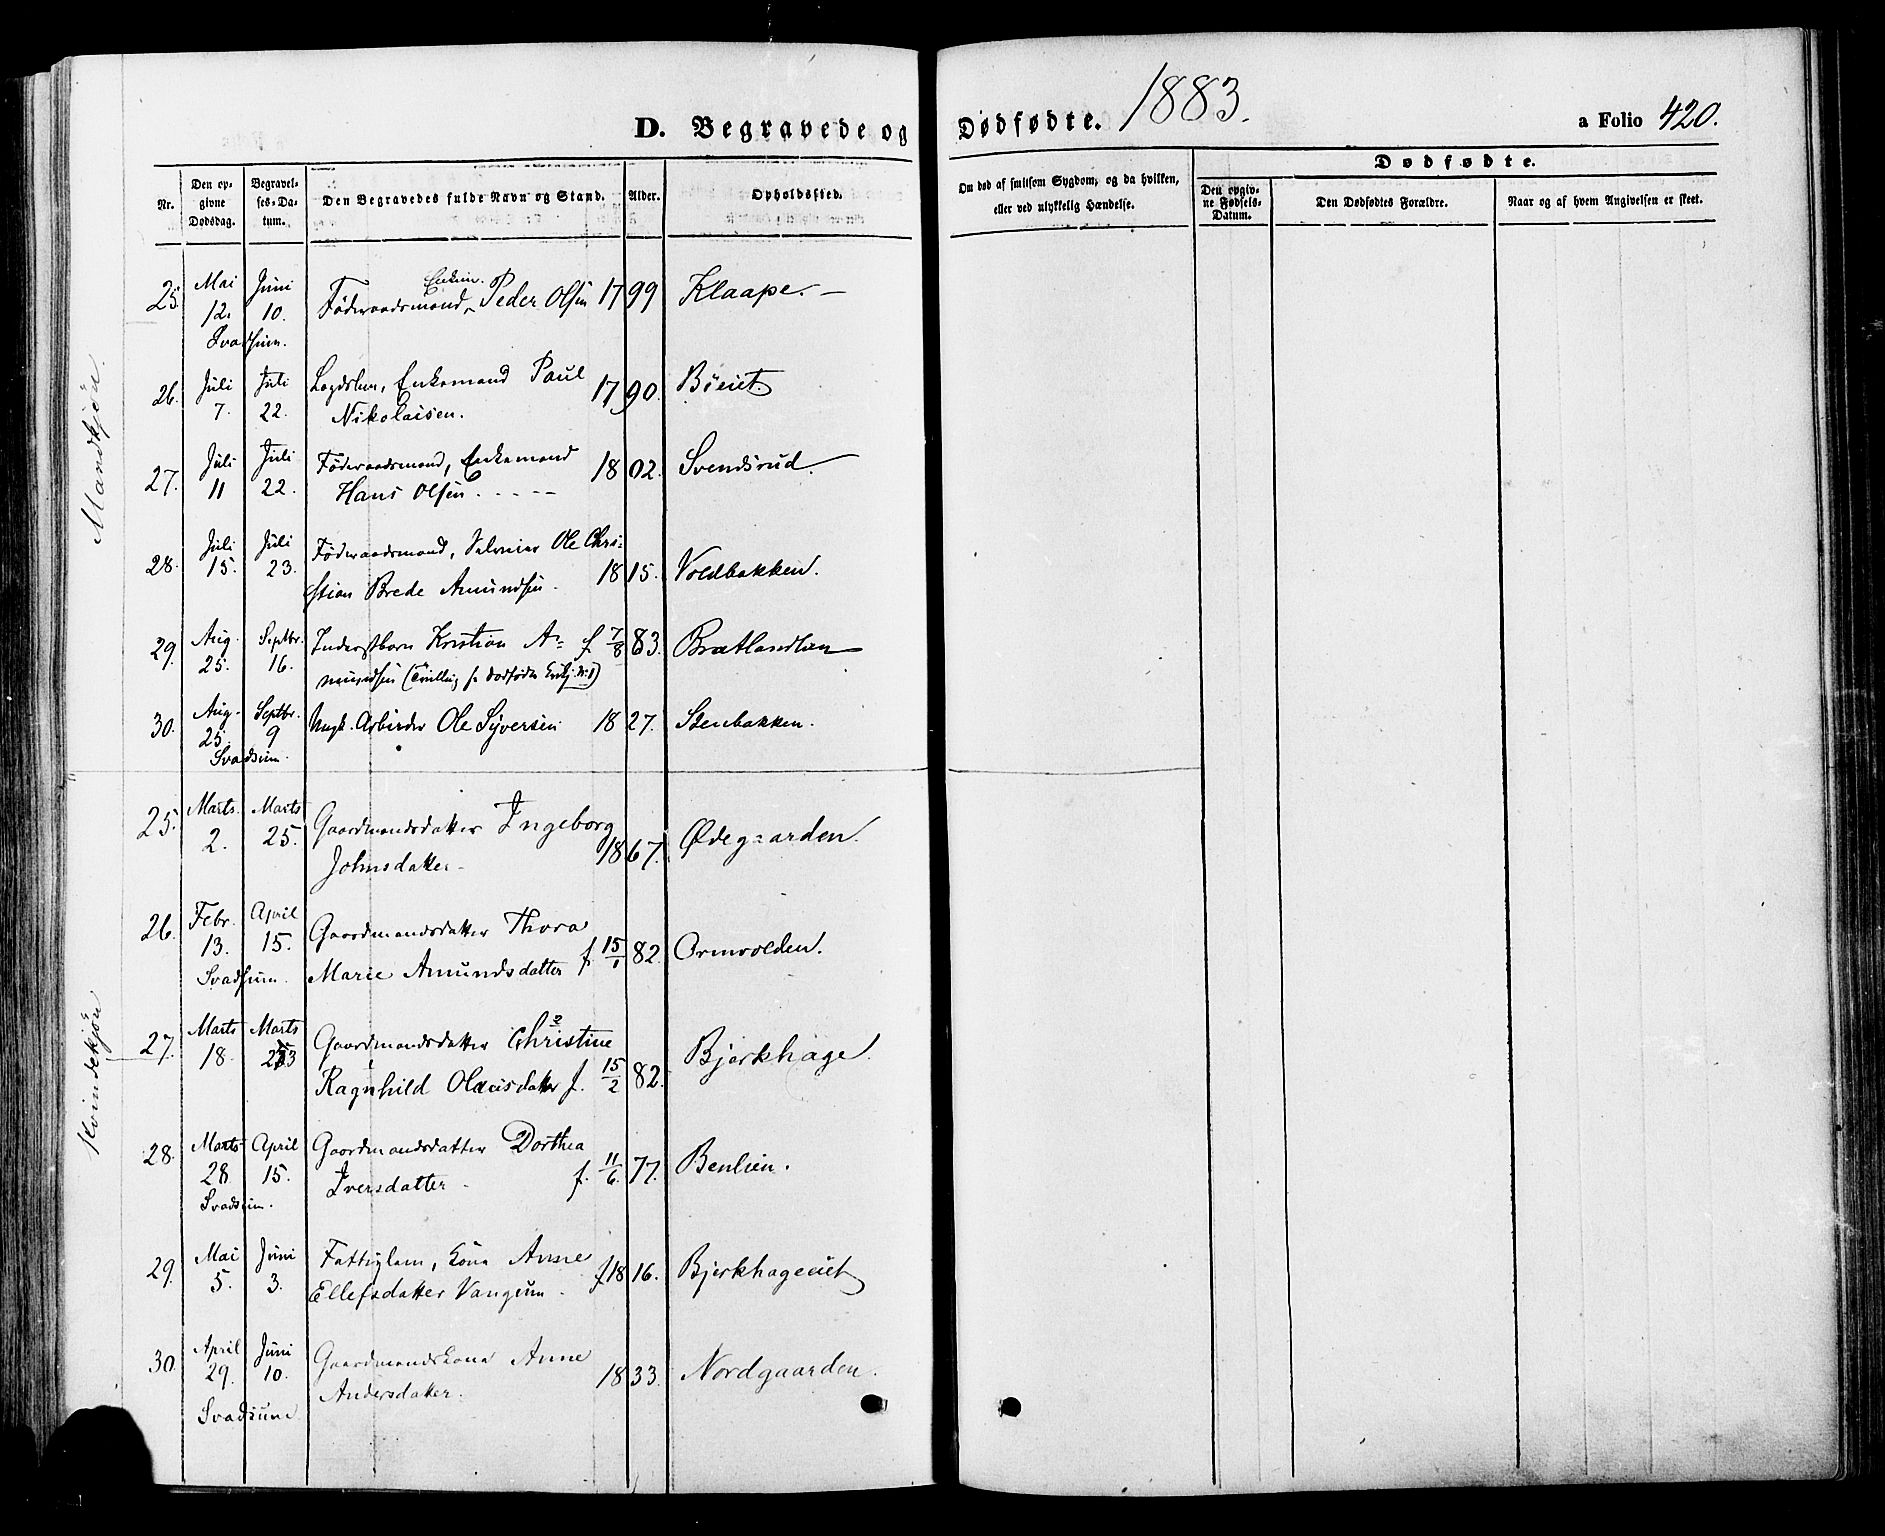 D. Begravede og Dødfødte. 1883. a Folio 420.
Nr.
Den opgivne Dødsdag.
Begravelses-Datum.
Den Begravedes fulde Navn og Stand.
Alder.
Opholdssted.
Om død af smitsom Sygdom, og da hvilken, eller ved ulykkelig Hændelse.
Dødfødte.
Den opgivne Fødsels-Datum.
Den Dødfødtes Forældre.
Naar og af hvem Angivelsen er skeet.
Mandkjön.
25. Mai Juni Enkem.
12. 10. Föderaadsmand, Peder Olsen 1799 Klaape.
Svadsum.
26. Juli Juli Lægdslem, Enkemand Paul 1790. Böeiet.
7. 22. Nikolaisen.
27. Juli Juli Föderaadsmand, Enkemand 1802. Svendsrud.
11 22. Hans Olsen
28. Juli Juli Föderaadsmand, Ole Chri-
15. 23. stian Brede Amundsen. 1815. Voldbakken.
29. Aug. Septbr. Inderstbarn Kristian A= f. 7/8 83. Brætlandlien
25. 16. mundsen (Tvilling
30. Aug. Septbr. Ungk. Arbeider Ole Syversen 1827. Stenbakken.
25. 9
Svadsum.
Kvindekjön
25. Marts Marts Gaardmandsdatter Ingeborg
2. 25. Johnsdatter 1867. Ødegaarden.
26. Febr. April Gaardmandsdatter Thora
13. 15. Marie Amundsdatter f. 15/1 82. Ormvolden.
Svadsum.
27. Marts Marts Gaardmandsdatter Christine
18. 23 Ragnhild Olausdatter f. 15/2 82. Bjerkhage.
28. Marts April Gaardmandsdatter Dorthea
28 15. Iversdatter f. 11/6 77. Benlien.
Svadsum.
29. Mai Juni Fattiglem, Kona Anne
5. 3. Ellefsdatter Vangum f 1816. Bjerkhageeiet
30. April Juni Gaardmandskona Anne
29. 10. Andersdatter. 1833. Nordgaarden.
Svadsum